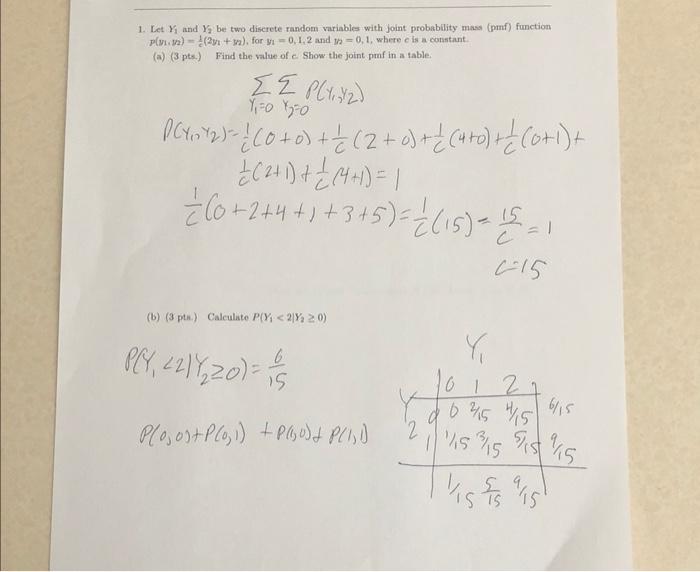 1. Let Y₁ and Y₂ be two discrete random variables with joint probability mass (pmf) function
p(y₁, y₂) = 1/c (2y₁ + y₂), for y₁ = 0, 1, 2 and y₂ = 0, 1, where c is a constant.
(a) (3 pts.) Find the value of c. Show the joint pmf in a table.
Σ Σ P(Y₁,Y2)
Y₁=0 Y₂=0
P(Y₁,Y2)=1/c(0+0)+1/c(2+0)+1/c(4+0)+1/c(0+1)+
1/c(2+1)+1/c(4+1)=1
1/c(0+2+4+1+3+5)=1/c(15)=15/c=1
c=15
(b) (3 pts.) Calculate P(Y₁ < 2|Y₂ ≥ 0)
P(Y₁<2|Y₂≥0)=6/15
P(0,0)+P(0,1)+P(1,0)+P(1,1)
Y₁
0 1 2
Y2
0 0 2/15 4/15 6/15
1 1/15 3/15 5/15 9/15
1/15 5/15 9/15